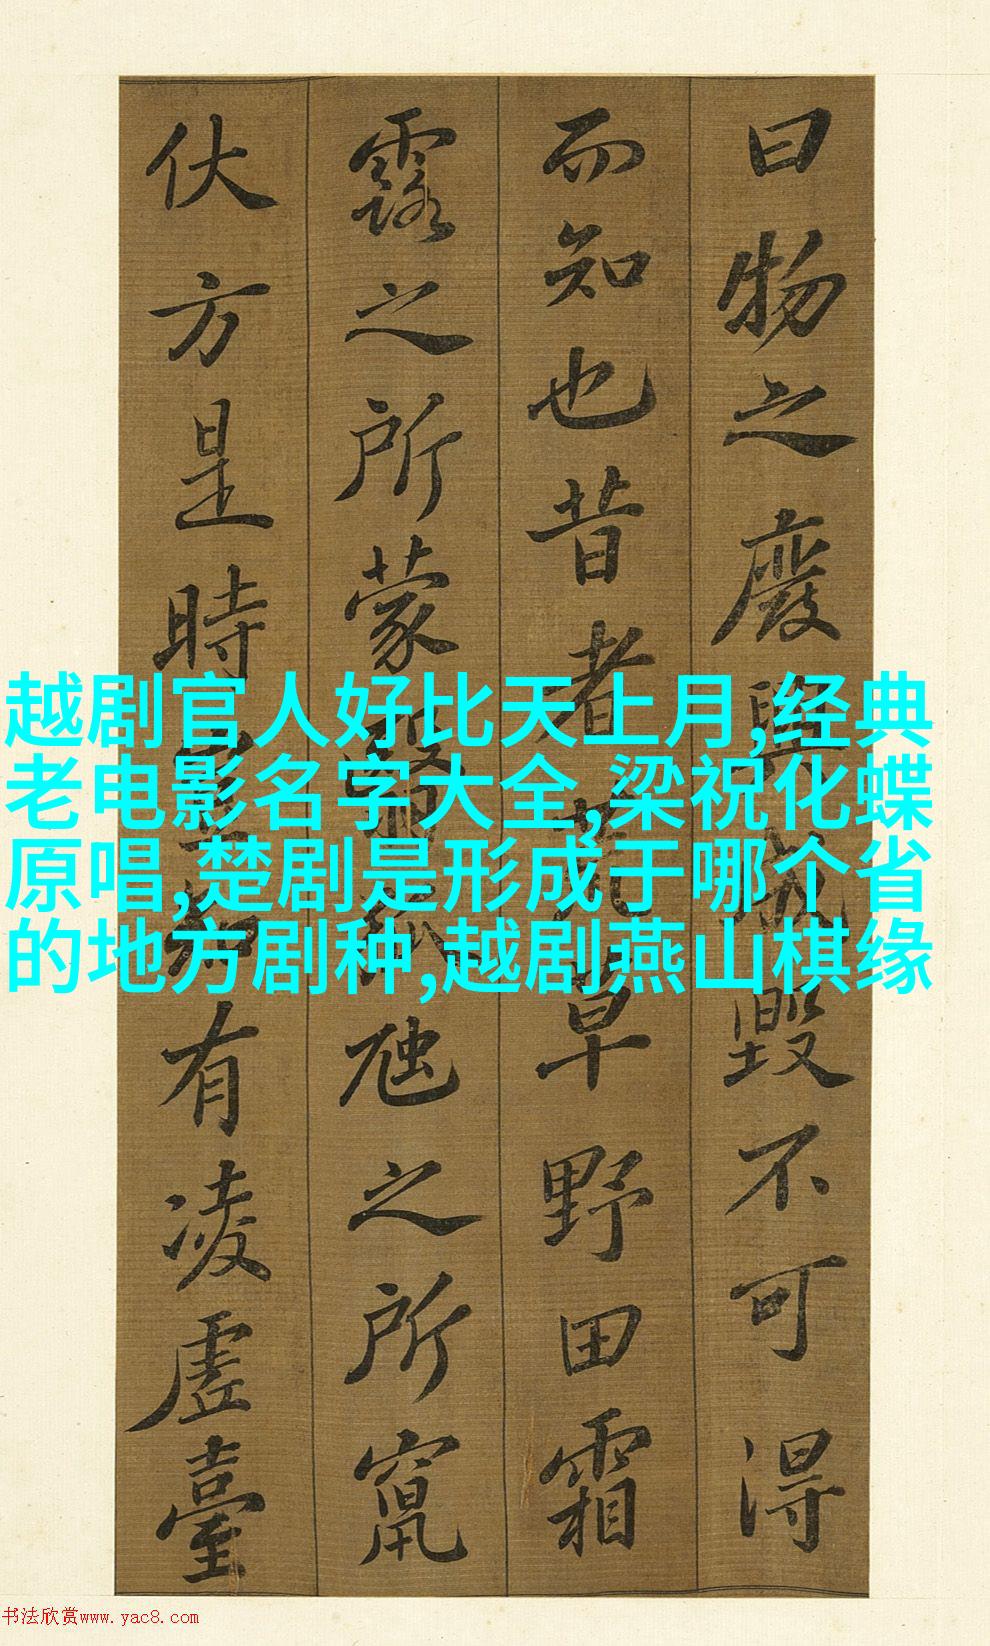 曰物之廢興成毀不可得
而知也昔者荒草野田霜
露之所蒙翳狐虺之所竄
伏方是時豈知有凌虛臺
越剧官人好比天上月,经典
老电影名字大全,梁祝化蝶
原唱,楚剧是形成于哪个省
的地方剧种,越剧燕山棋缘
书法欣赏www.yac8.com